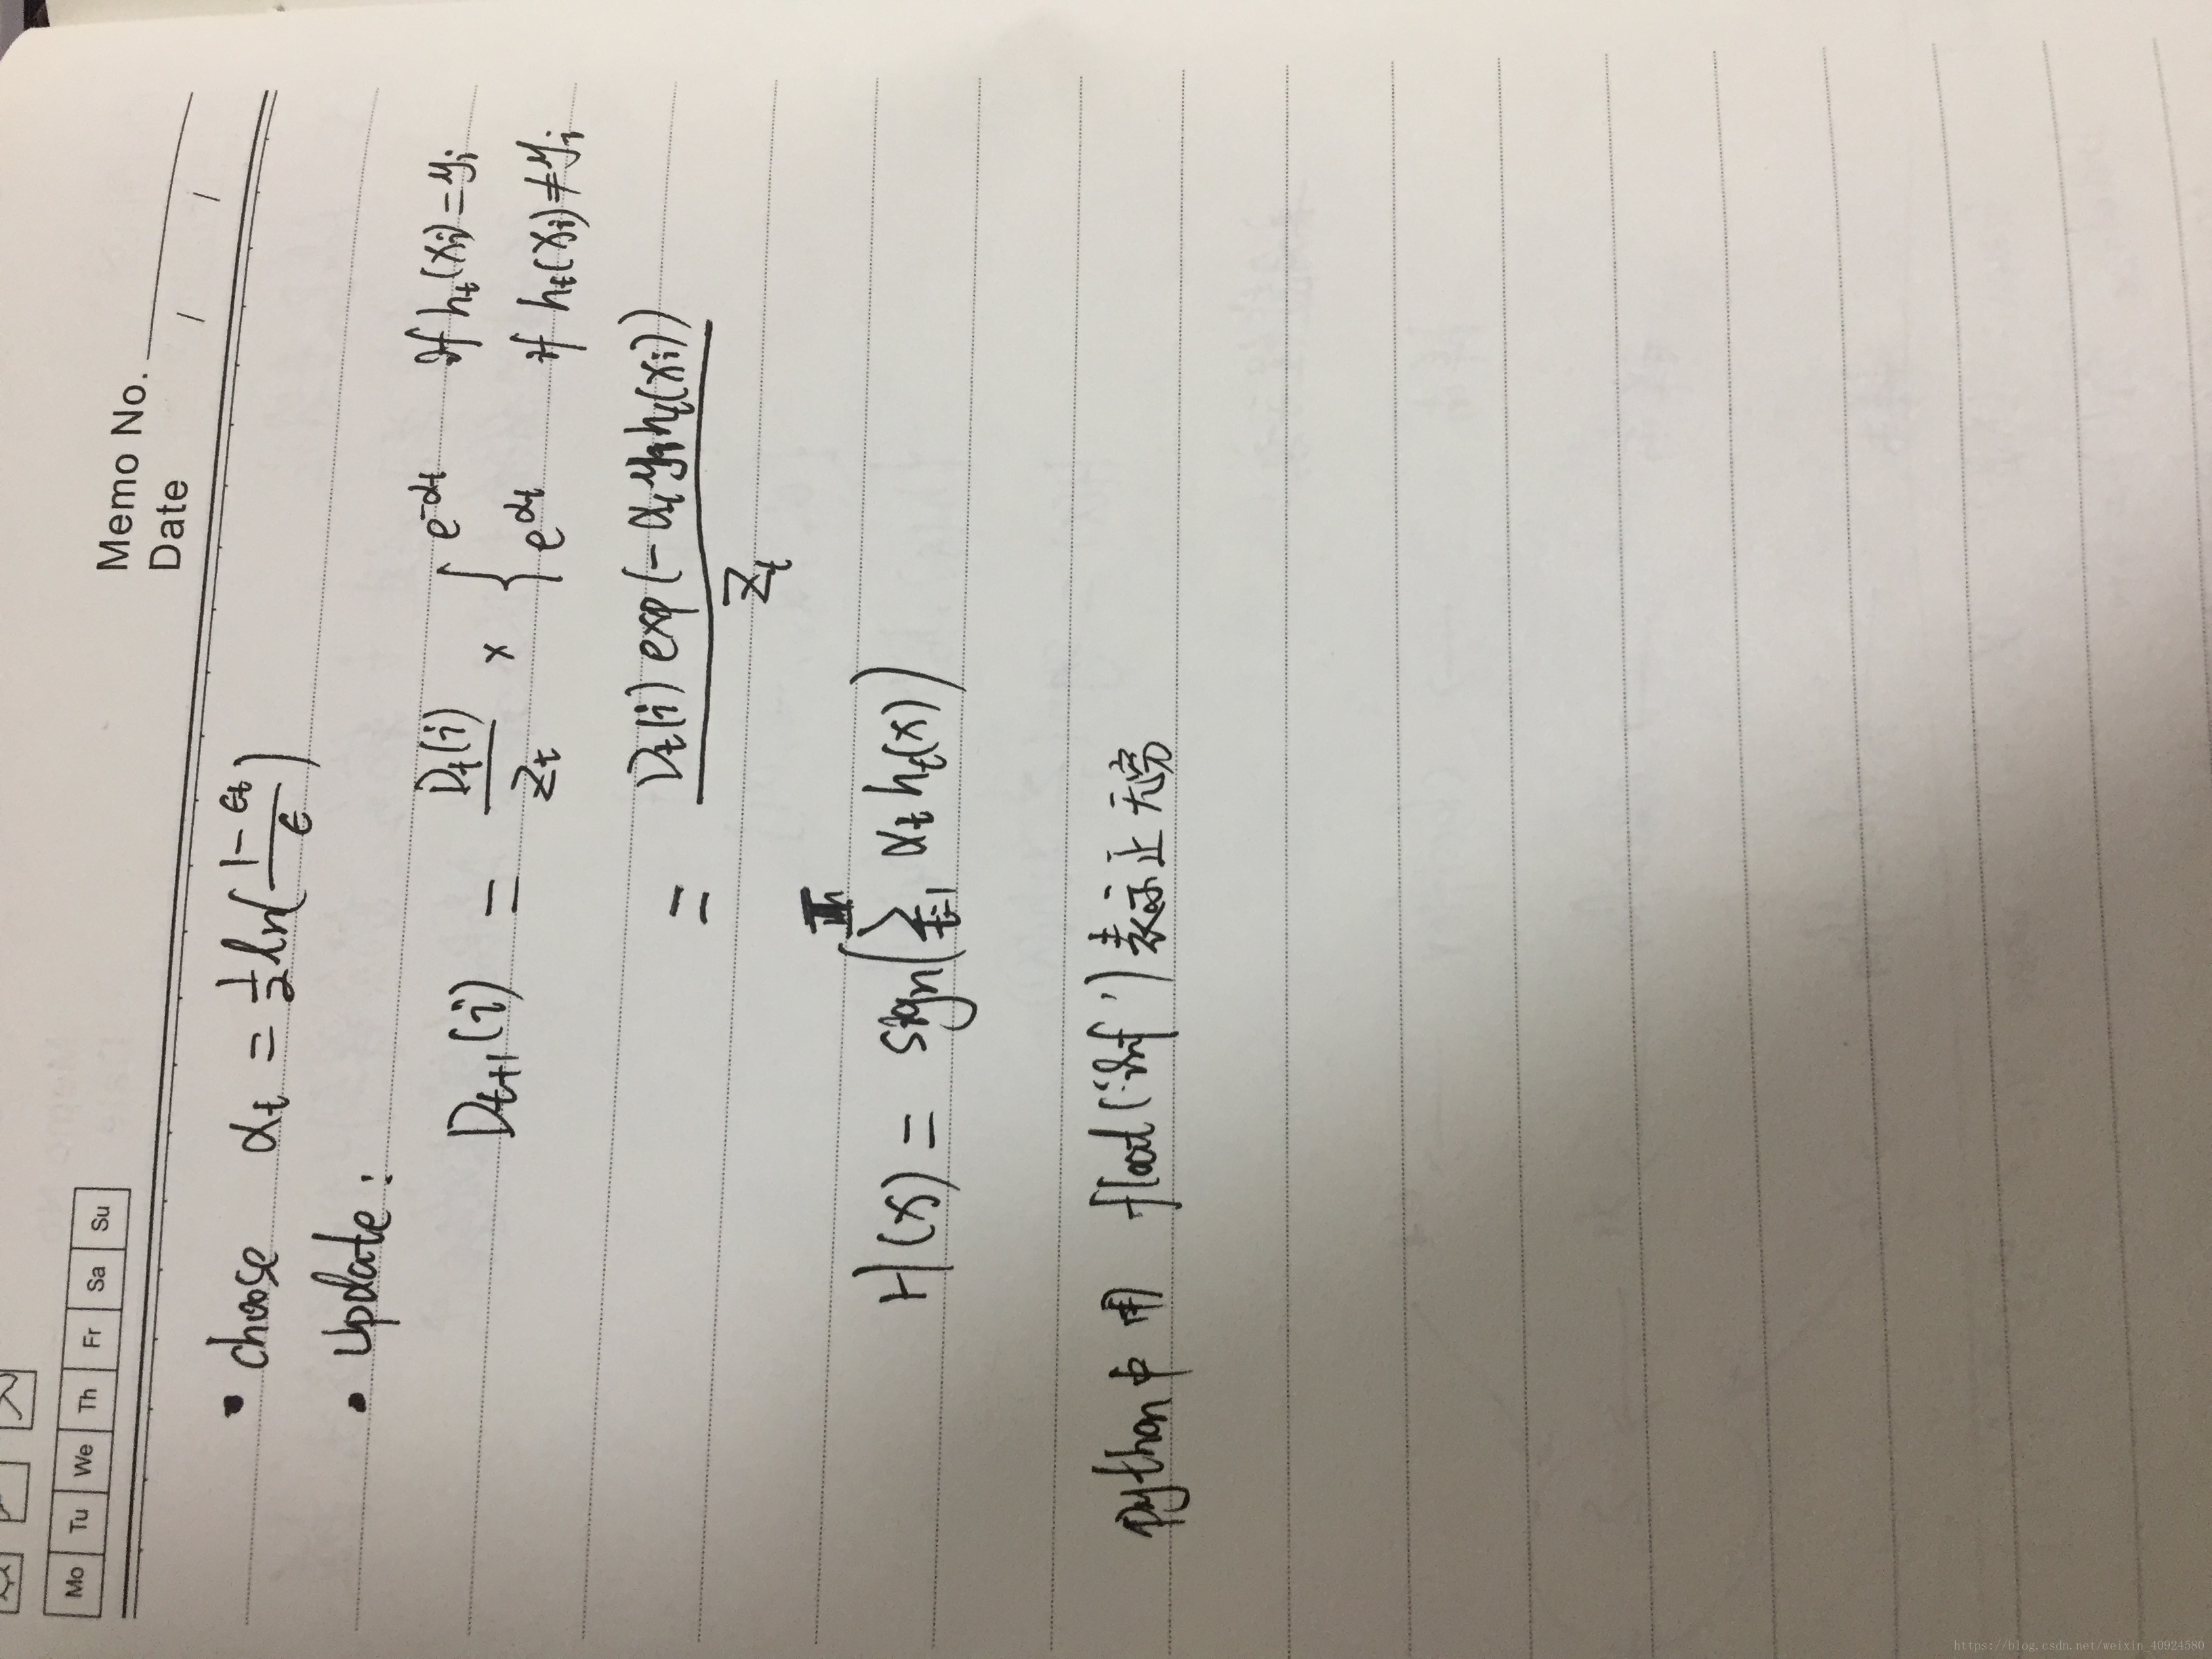 Memo No.
Date / /
Mo Tu We Th Fr Sa Su
• choose α_t = 1/2 ln(1-ϵ_t / ϵ)
• update:
D_{t+1}(i) = D_t(i) / Z_t × { e^{-α_t} if h_t(x_i) = y_i
e^{α_t} if h_t(x_i) ≠ y_i
= D_t(i) exp(-α_t y_i h_t(x_i)) / Z_t
H(x) = sign(∑_{t=1} α_t h_t(x))
python中用 float('inf')表示正无穷
https://blog.csdn.net/weixin_40924580